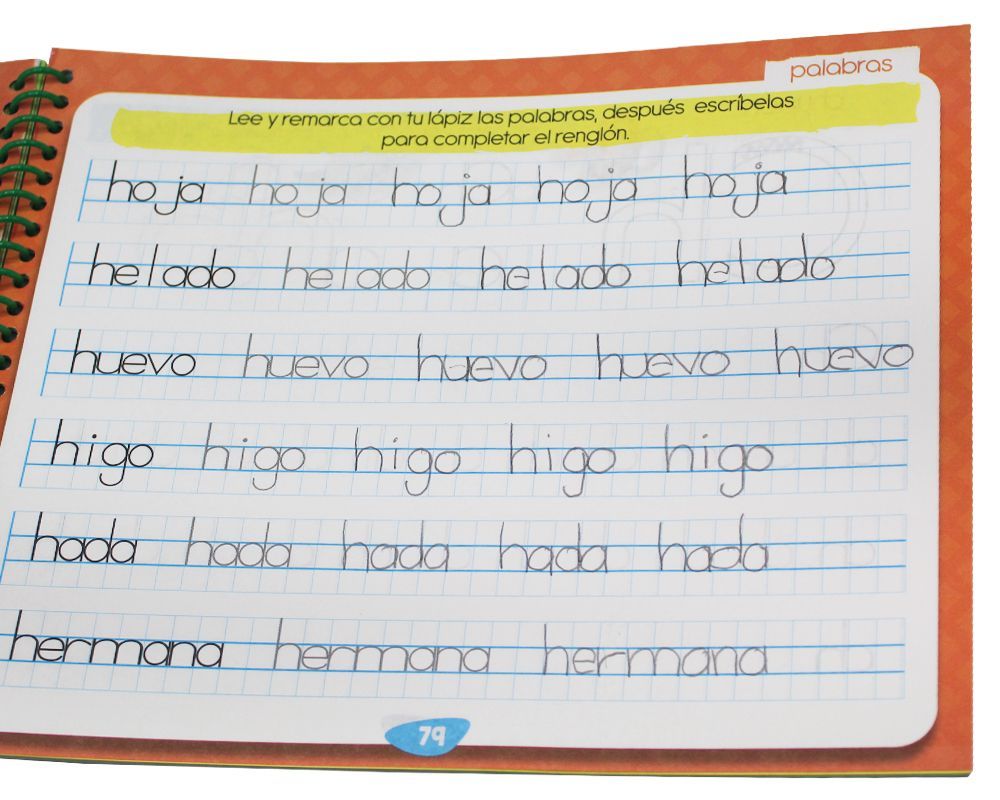 palabras
Lee y remarca con tu lápiz las palabras, después escríbelas
para completar el renglón.
hoja hoja hoja hoja hoja
helado helado helado helado
huevo huevo huevo huevo huevo
higo higo higo higo higo
hada hada hada hada hada
hermana hermana hermana
79